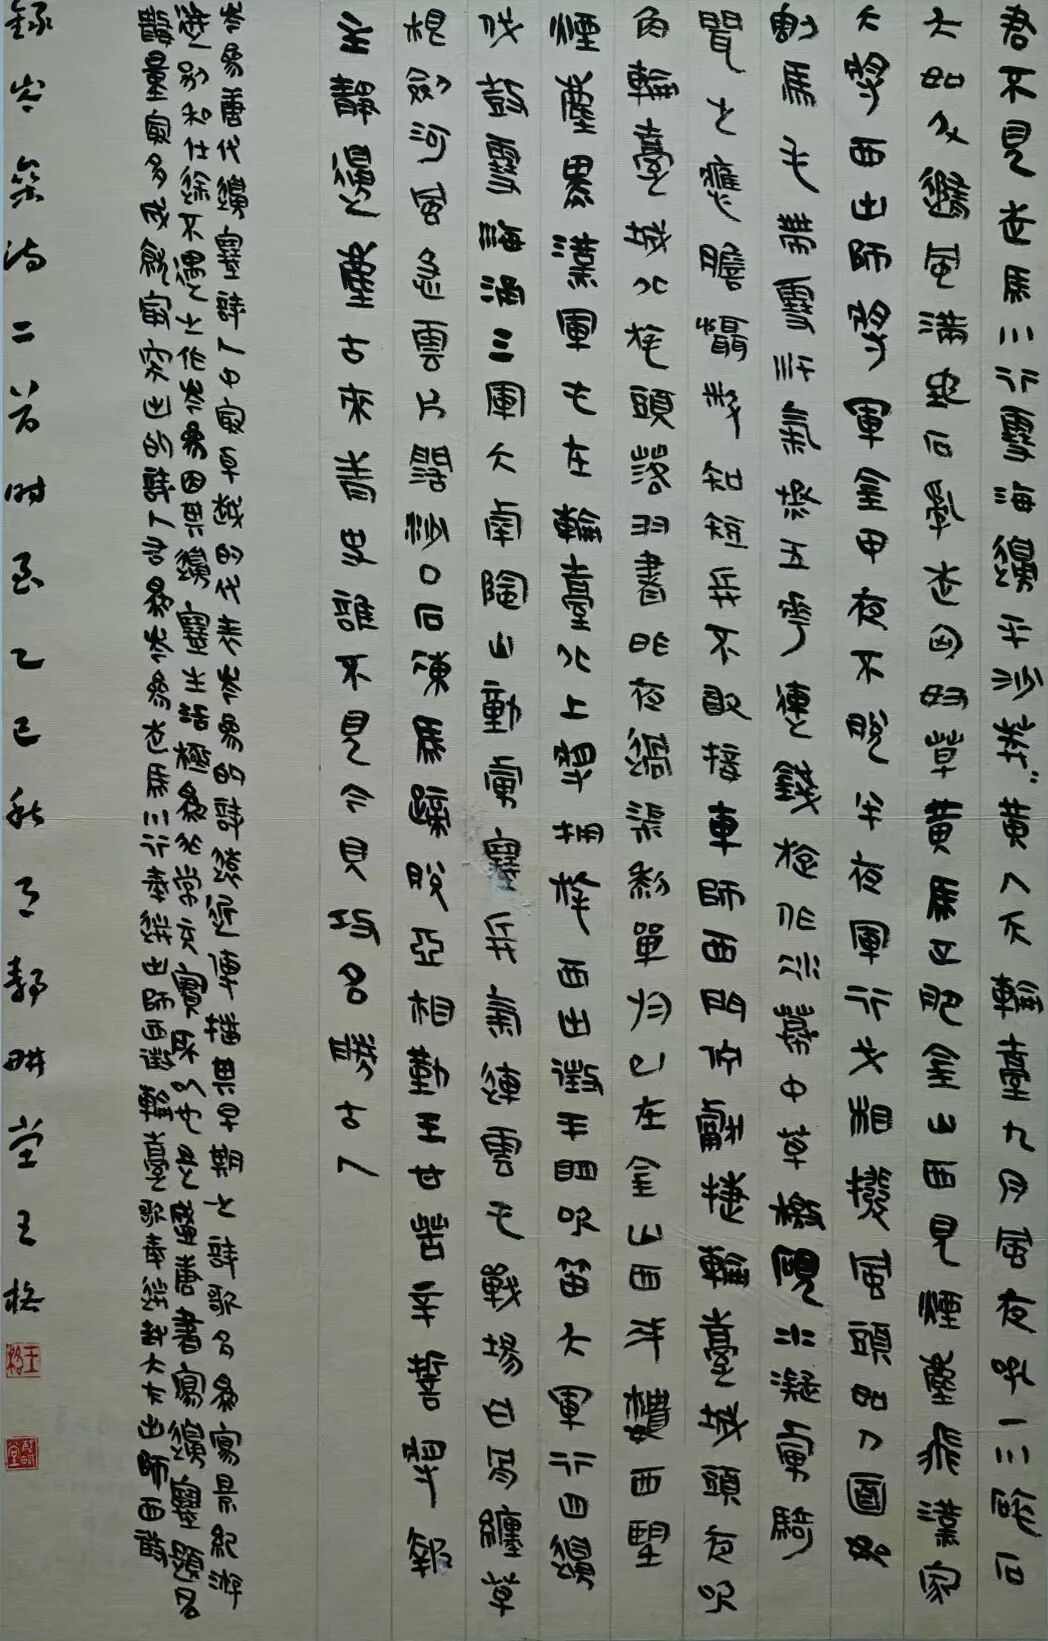 君不見走馬川行雪海邊平沙莽莽黃入天輪臺九月風夜吼一川碎石
大如斗隨風滿地石亂走匈奴草黃馬正肥金山西見煙塵飛漢家
大將西出師將軍金甲夜不脫半夜軍行戈相撥風頭如刀面如
割馬毛帶雪汗氣蒸五花連錢旋作冰幕中草檄硯水凝虜騎
聞之應膽懾料知短兵不敢接車師西門佇獻捷輪臺城頭夜吹
角輪臺城北旄頭落羽書昨夜過渠黎單于已在金山西戍樓西望
煙塵黑漢軍屯在輪臺北上將擁旄西出征平明吹笛大軍行四邊
伐鼓雪海涌三軍大呼陰山動虜塞兵氣連雲屯戰場白骨纏草
根劍河風急雲片闊沙口石凍馬蹄脫亞相勤王甘苦辛誓將報
主靜邊塵古來青史誰不見今見功名勝古人
岑參唐代邊塞詩人中的代表岑參的詩 早期之詩歌多為寫景紀游
送別和仕途不遇之作岑參因其邊塞生活極為充實所以 書寫邊塞題
岑參走馬川行奉送出師西征輪臺歌奉送封大夫出師西征
錄岑參詩二首時在乙巳秋月靜耕堂王格
王格
靜耕堂